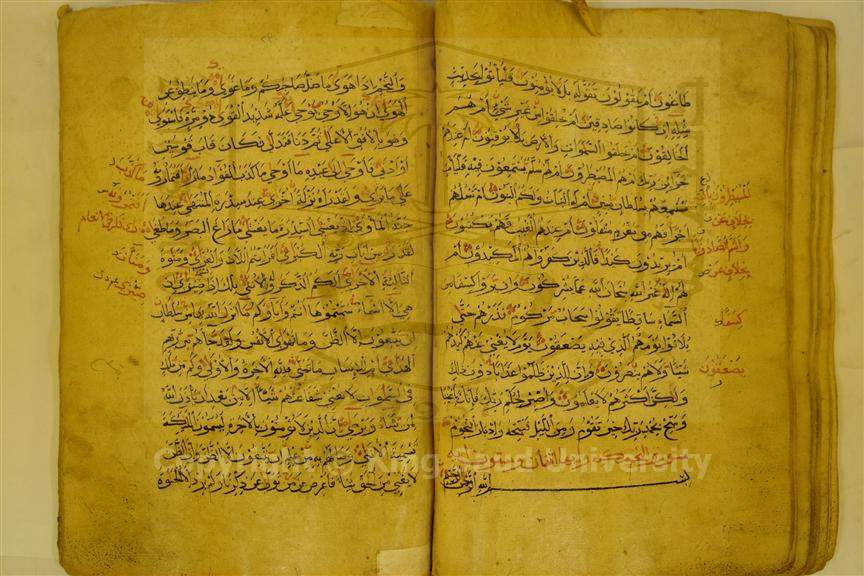 طاغون ام يقولون تقوله بل لا يؤمنون فلياتوا بحديث
مثله ان كانوا صادقين ام خلقوا من غير شيء ام هم
الخالقون ام خلقوا السموات والارض بل لا يوقنون ام عندهم
خزاين ربك ام هم المصيطرون ام لهم سلم يستمعون فيه فليات
مستمعهم بسلطان مبين ام له البنات ولكم البنون ام تسئلهم
اجرا فهم من مغرم مثقلون ام عندهم الغيب فهم يكتبون
ام يريدون كيدا فالذين كفروا هم المكيدون ام
لهم اله غير الله سبحان الله عما يشركون وان يروا كسفا من
السماء ساقطا يقولوا سحاب مركوم فذرهم حتى
يلاقوا يومهم الذي فيه يصعقون يوم لا يغني عنهم كيدهم
شيئا ولا هم ينصرون وان للذين ظلموا عذابا دون ذلك
ولكن اكثرهم لا يعلمون واصبر لحكم ربك فانك باعيننا
وسبح بحمد ربك حين تقوم ومن الليل فسبحه وادبار النجوم
سورة النجم
بسم الله الرحمن الرحيم
المصيطرون
بخلاف عن
بخلاف عن
كسفا
يصعقون
والنجم اذا هوى ما ضل صاحبكم وما غوى وما ينطق عن
الهوى ان هو الا وحي يوحى علمه شديد القوى ذو مرة فاستوى
وهو بالافق الاعلى ثم دنا فتدلى فكان قاب قوسين
او ادنى فاوحى الى عبده ما اوحى ما كذب الفؤاد ما راى افتمارونه
على ما يرى ولقد راه نزلة اخرى عند سدرة المنتهى عندها
جنة الماوى اذ يغشى السدرة ما يغشى ما زاغ البصر وما طغى
لقد راى من ايات ربه الكبرى افرايتم اللات والعزى ومنوة
الثالثة الاخرى الكم الذكر وله الانثى تلك اذا قسمة ضيزى ان
هي الا اسماء سميتموها انتم واباؤكم ما انزل الله بها من سلطان
ان يتبعون الا الظن وما تهوى الانفس ولقد جاءهم من ربهم
الهدى ام للانسان ما تمنى فلله الاخرة والاولى وكم من ملك
في السموات لا تغني شفاعتهم شيئا الا من بعد ان ياذن الله
لمن يشاء ويرضى ان الذين لا يؤمنون بالاخرة ليسمون الملئكة
تسمية الانثى وما لهم به من علم ان يتبعون الا الظن وان الظن
لا يغني من الحق شيئا فاعرض عن من تولى عن ذكرنا ولم يرد الا الحيوة
ما كذب
ضيزى
Copyright © King Saud University